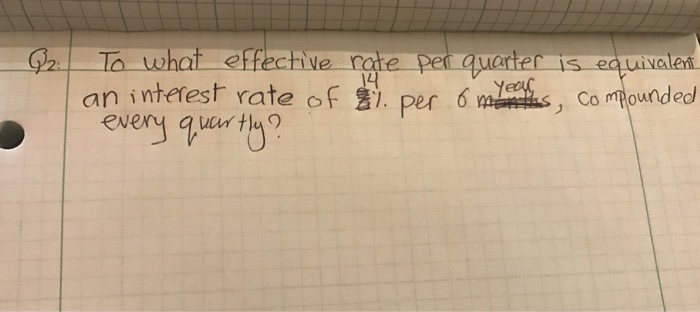 Q2. To what effective rate per quarter is equivalent
14
an interest rate of 8%. per 6 months, compounded
years
every quartly?